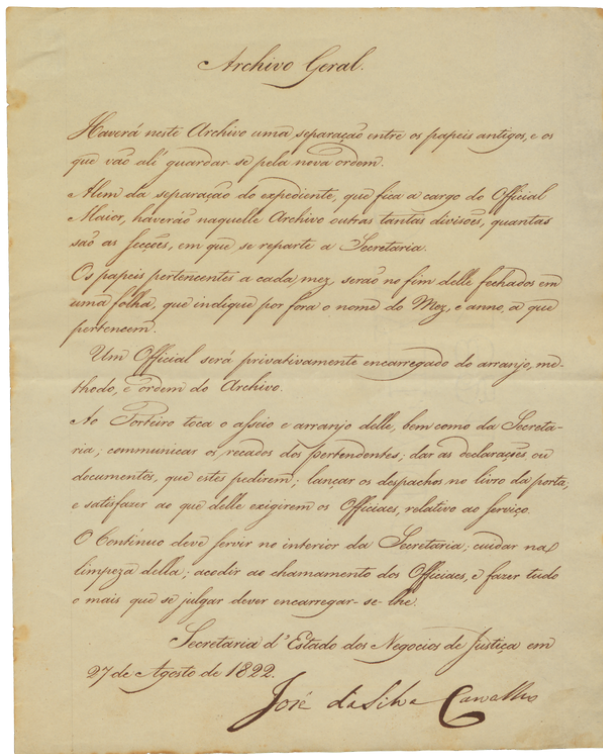 Archivo Geral.
Haverá neste Archivo uma separação entre os papeis antigos, e os
que vão alí guardar-se pela nova ordem.
Alem da separação do expediente, que fica a cargo do Official
Maior, haverão naquelle Archivo outras tantas divisões, quantas
são as Secções, em que se reparte a Secretaria.
Os papeis pertencentes a cada mez, serão no fim delle fechados em
uma folha, que indique por fora o nome do Mez, e anno, a que
pertencem.
Um Official será privativamente encarregado do arranjo, me-
thodo, e ordem do Archivo.
Ao Porteiro toca o asseio e arranjo delle, bem como da Secreta-
ria; communicar os recados dos Pertendentes; dar as declarações, ou
documentos, que estes pedirem; lançar os despachos no livro da porta,
e satisfazer ao que delle exigirem os Officiaes, relativo ao serviço.
O Continuo deve servir no interior da Secretaria; cuidar na
limpeza della; acodir ao chamamento dos Officiaes, e fazer tudo
o mais que se julgar dever encarregar-se-lhe.
Secretaria d'Estado dos Negocios de Justiça em
27 de Agosto de 1822.
José da Silva Carvalho